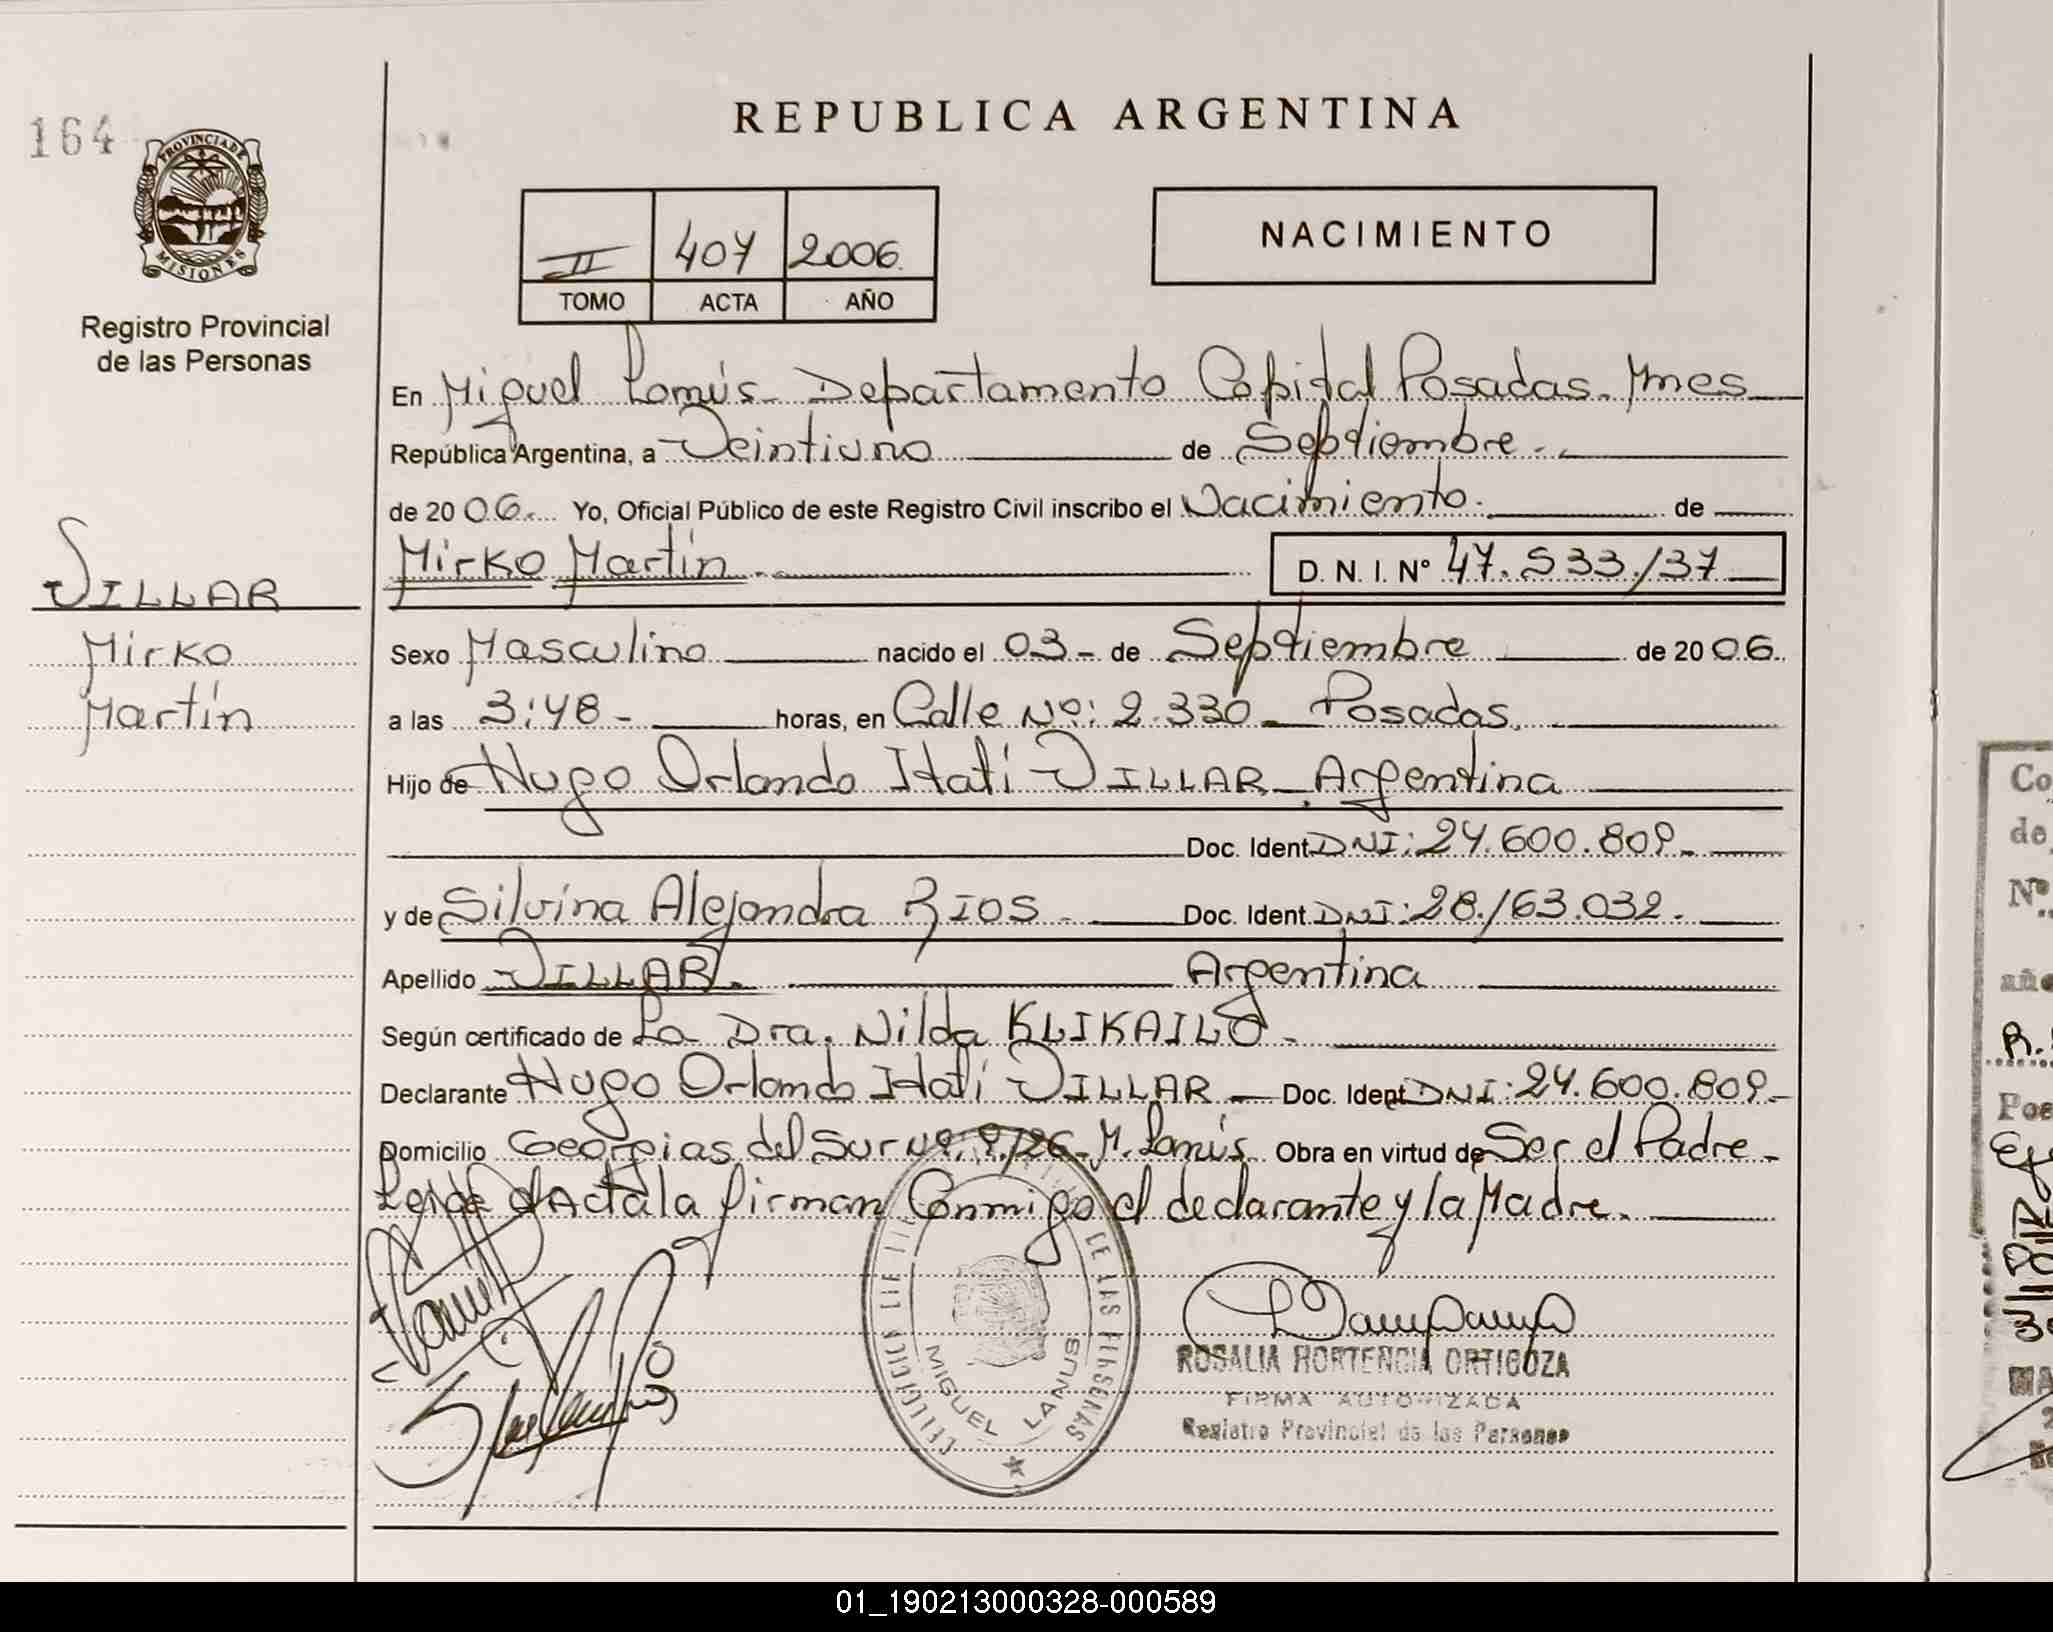 164
PROVINCIA DE
MISIONES
Registro Provincial
de las Personas
VILLAR
Mirko
Martín
REPUBLICA ARGENTINA
II 407 2006.
TOMO ACTA AÑO
NACIMIENTO
En Miguel Lanús - Departamento Capital Posadas. Mnes
República Argentina, a Veintiuno de Septiembre.-
de 2006. Yo, Oficial Público de este Registro Civil inscribo el Nacimiento. de
Mirko Martín - D. N. I. Nº 47.533.137
Sexo Masculino nacido el 03 - de Septiembre de 2006.
a las 3:48 - horas, en Calle Nº: 2.330 - Posadas.
Hijo de Hugo Orlando Itatí VILLAR - Argentina
Doc. Ident. DNI: 24.600.809.-
y de Silvina Alejandra RIOS - Doc. Ident. DNI: 28.163.032.
Apellido VILLAR. Argentina
Según certificado de La Dra. Nilda KLIKAILO -
Declarante Hugo Orlando Itatí VILLAR - Doc. Ident. DNI: 24.600.809.-
Domicilio Georgias del Sur Nº: 9.126 - M. Lanús. Obra en virtud de Ser el Padre -
Leida el Acta la firman Conmigo el declarante y la Madre.
DE LAS PERSONAS
MIGUEL LANUS
ROSALIA HORTENCIA ORTIGOZA
FIRMA AUTORIZADA
Registro Provincial de las Personas
Co
de
Nº
R.
Pos
01_190213000328-000589